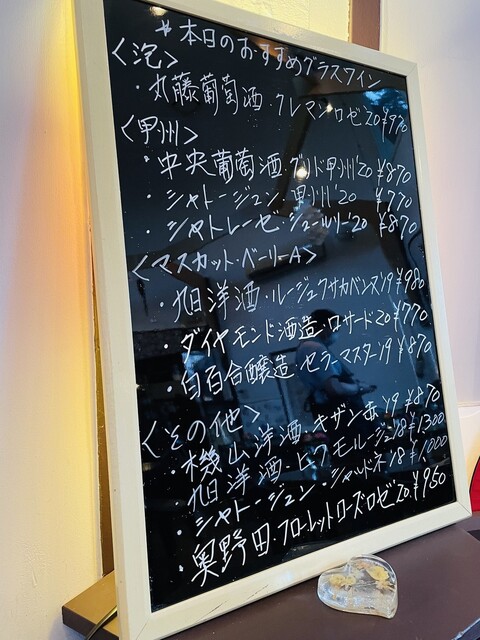 *本日のおすすめグラスワイン
<泡>
・丸藤葡萄酒・クレマンロゼ'20 ¥970
<甲州>
・中央葡萄酒・グリド甲州'20 ¥870
・シャトージュン・甲州'20 ¥770
・シャトレーゼ・シュールリー'20 ¥870
<マスカット・ベーリーA>
・旭洋酒・ルージュクサカベンヌ'19 ¥980
・ダイヤモンド酒造・ロサード'20 ¥770
・白百合醸造・セラーマスター'19 ¥870
<その他>
・機山洋酒・キザン赤'19 ¥870
・旭洋酒・ピノワモルージュ'18 ¥1300
・シャトージュン・シャルドネ'18 ¥1000
・奥野田・フローレットローズロゼ'20 ¥950